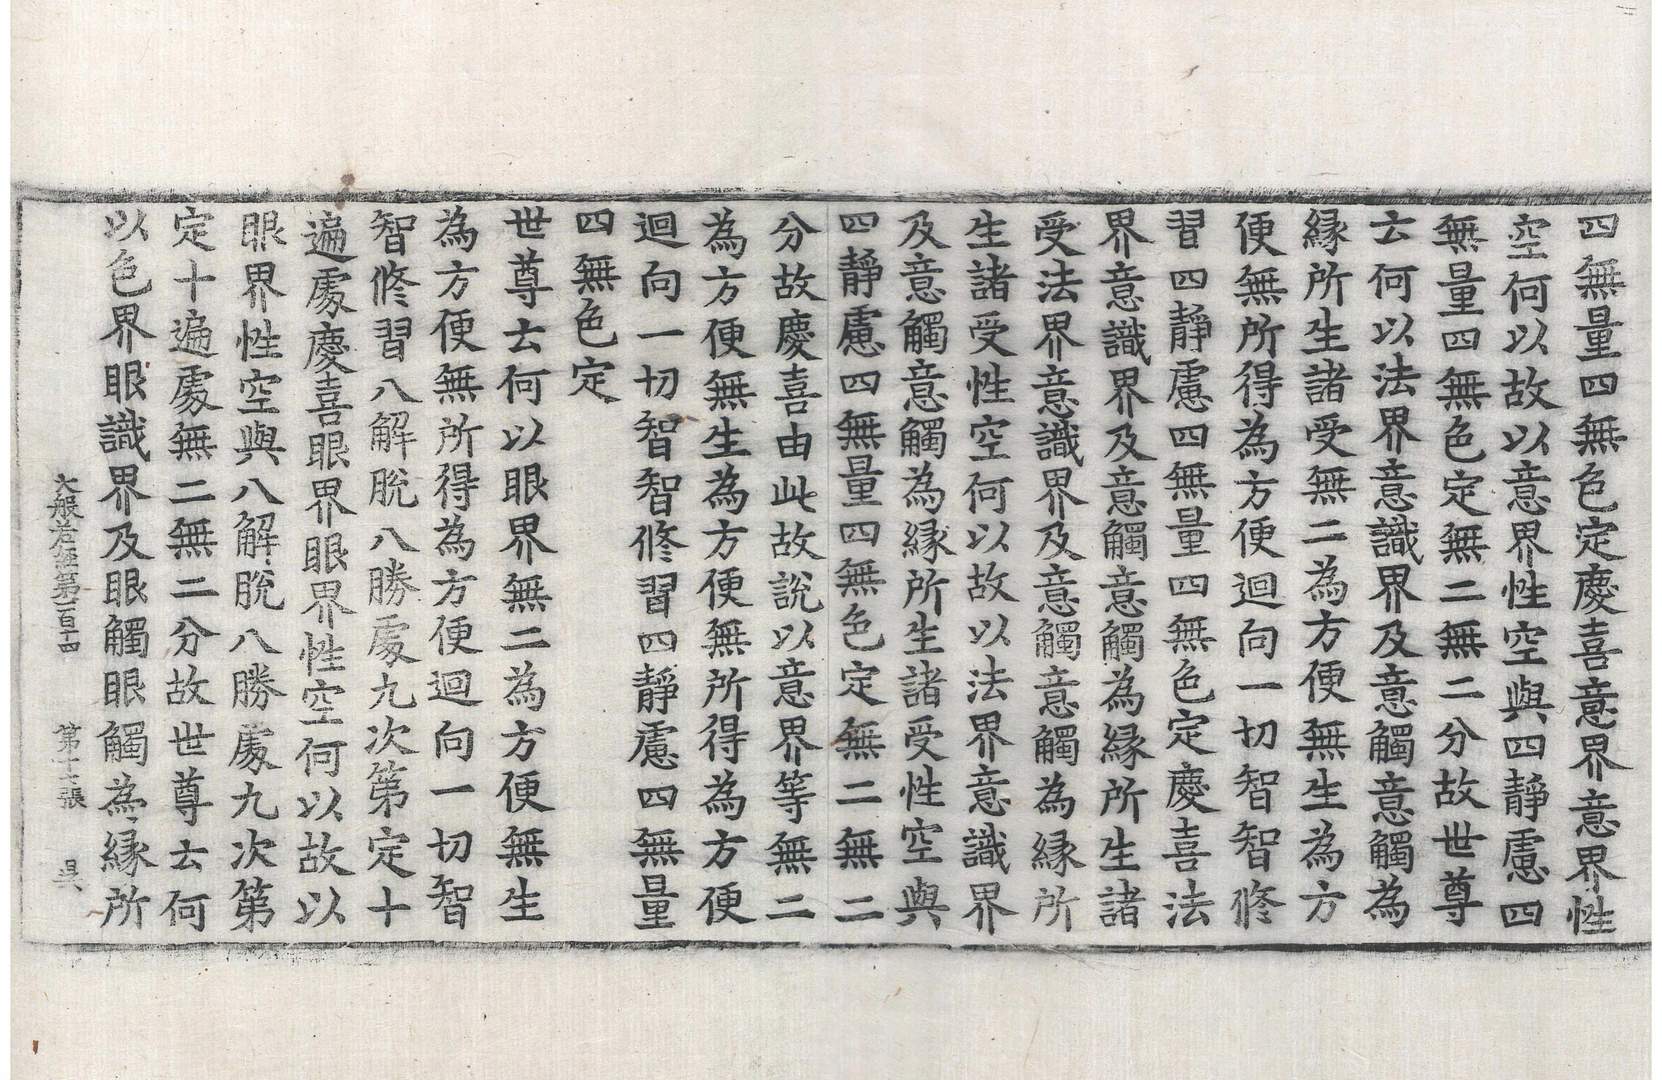 四無量四無色定慶喜意界意界性
空何以故以意界性空與四靜慮四
無量四無色定無二無二分故世尊
云何以法界意識界及意觸意觸為
緣所生諸受無二為方便無生為方
便無所得為方便迴向一切智智修
習四靜慮四無量四無色定慶喜法
界意識界及意觸意觸為緣所生諸
受法界意識界及意觸意觸為緣所
生諸受性空何以故以法界意識界
及意觸意觸為緣所生諸受性空與
四靜慮四無量四無色定無二無二
分故慶喜由此故說以意界等無二
為方便無生為方便無所得為方便
迴向一切智智修習四靜慮四無量
四無色定
世尊云何以眼界無二為方便無生
為方便無所得為方便迴向一切智
智修習八解脫八勝處九次第定十
遍處慶喜眼界眼界性空何以故以
眼界性空與八解脫八勝處九次第
定十遍處無二無二分故世尊云何
以色界眼識界及眼觸眼觸為緣所
大般若經第一百十四　第十二張　昃